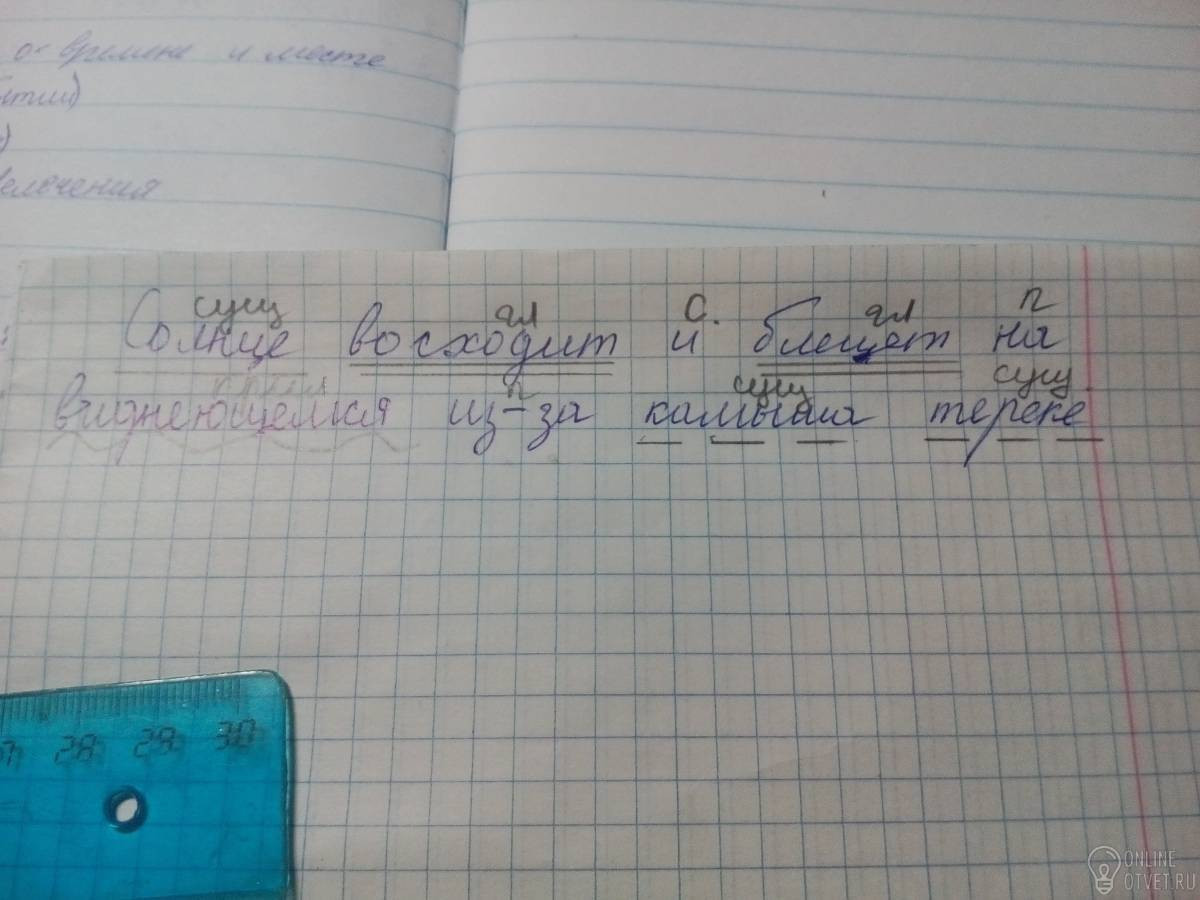 о времене и месте
елочения
сущ гл С. гл п
Солнце восходит и блещет на
прил п сущ сущ
виднеющемся из-за камыша тереке
28 29 30
ONLINE
OTVET.RU